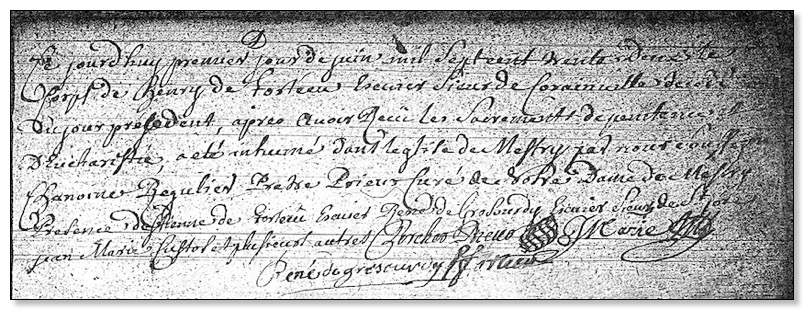 Ce jourdhuy premier jour de juin mil sept cent trente deux le
Corps de Henry de forteau Escuier Sieur de Corainville decedé
du jour precedent, apres avoir Receu les sacrements de penitence et
d'Eucharistie, a eté inhumé dans leglise de Messry par nous soussigné
Chanoine Regulier Prestre Prieur Curé de Nostre Dame de Messry
Presence d'Etienne de forteau Escuier René de Grosourdy Escuier Sieur de St
jean Marie Custos et plusieurs autres J Marie
René de grosourdy